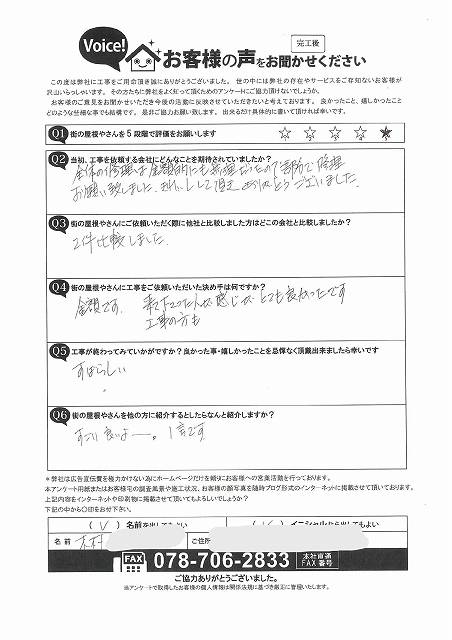 Voice!
完工後
お客様の声をお聞かせください
この度は弊社に工事をご用命頂き誠にありがとうございました。 世の中には弊社の存在やサービスをご存知ないお客様が
沢山いらっしゃいます。その方たちに弊社をよく知って頂くためのアンケートにご協力頂けないでしょうか。
お客様のご意見をお聞かせいただき今後の活動に反映させていただきたいと考えております。 良かったこと、嬉しかったこと
どのような些細な事でも結構です。 是非ご協力お願い致します。 出来るだけ具体的に書いて頂ければ幸いです。
Q1 街の屋根やさんを5段階で評価をお願いします
1 2 3 4 5
Q2 当初、工事を依頼する会社にどんなことを期待されていましたか?
全体の修理は金額的にも無理だったので部分で修理
お願い致しました。きれいにして頂きありがとうございました。
Q3 街の屋根やさんにご依頼いただく際に他社と比較しました方はどこの会社と比較しましたか?
2件比較しました。
Q4 街の屋根やさんに工事をご依頼いただいた決め手は何ですか?
金額です。 来て下さった人が感じがとても良かったです
工事の方も
Q5 工事が終わってみていかがですか?良かった事・嬉しかったことを忌憚なく頂戴出来ましたら幸いです
すばらしい
。
Q6 街の屋根やさんを他の方に紹介するとしたらなんと紹介しますか?
すごい良いよー。 1番です
*弊社は広告宣伝費を極力かけない為にホームページだけを頼りにお客様への営業活動を行っております。
本アンケート用紙またはお客様宅の調査風景や施工状況、お客様の顔写真を随時ブログ形式のインターネットに掲載させて頂いております。
上記内容をインターネットや印刷物に掲載させて頂いてもよろしいでしょうか?
下記の中から〇印をお付下さい。
(V) 名前を出してもよい (V) イニシャルなら出してもよい
名前 木村 ご住所
FAX 078-706-2833 本社直通 FAX番号
ご協力ありがとうございました。
※アンケートで取得したお客様の個人情報は関係法規に基づき厳正に管理いたします。